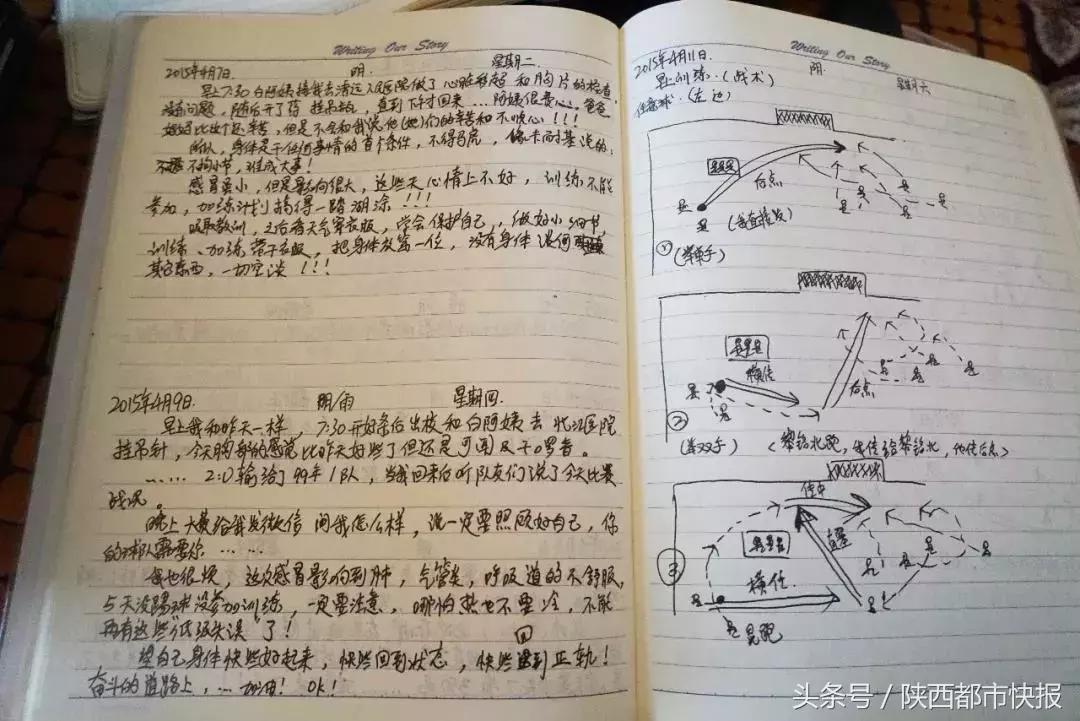 Writing Our Story
2015年4月7日. 阴. 星期二.
早上7:30白阿姨接我去清远人民医院做了心脏彩超和胸片的检查,
没有问题,随后开了药 挂吊瓶,直到下午才回来...阿姨很费心。爸爸
妈妈比这个还辛苦,但是不会和我说他(她)们的辛苦和不顺心!!!
所以,身体是干任何事情的首个条件,不得马虎,像卡耐基说的:
不拘小节,难成大事!
感冒虽小,但是影响很大,这些天心情上不好,训练不能
参加,加练计划搞得一踏湖涂!!!
吸取教训,之后看天气穿衣服,学会保护自己,做好小细节,
训练、加练带干衣服,把身体放第一位,没有身体谈何
其它东西,一切空谈!!!
2015年4月9日. 阴雨 星期四.
早上我和昨天一样,7:30开好条后出校和白阿姨去北江医院
挂吊针,今天胸部的感觉比昨天好些了但还是可困及干罗者。
...... 2:0输给了99年1队,当我回来后听队友们说了今天比赛
战况。
晚上大黄给我发微信 问我怎么样,说一定要照顾好自己,你
的球队需要你......
我也很烦,这次感冒影响到肺,气管炎,呼吸道的不舒服,
5天没踢球没参加训练,一定要注意,哪怕热也不要冷,不能
再有这些"低级失误"了!
望自己身体快些好起来,快些回到状态,快些回到正轨!
奋斗的道路上,...加油! OK!
Writing Our Story
2015年4月11日. 阴. 星期六
早上训练.(战术)
任意球.(左边)
后点
(我直接发)
①(举单手)
横传
后点
②
(举双手) (黎铭北跑,我传给黎铭北,他传后点)
传中
直塞
横传
③
晃跑
头条号 / 陕西都市快报